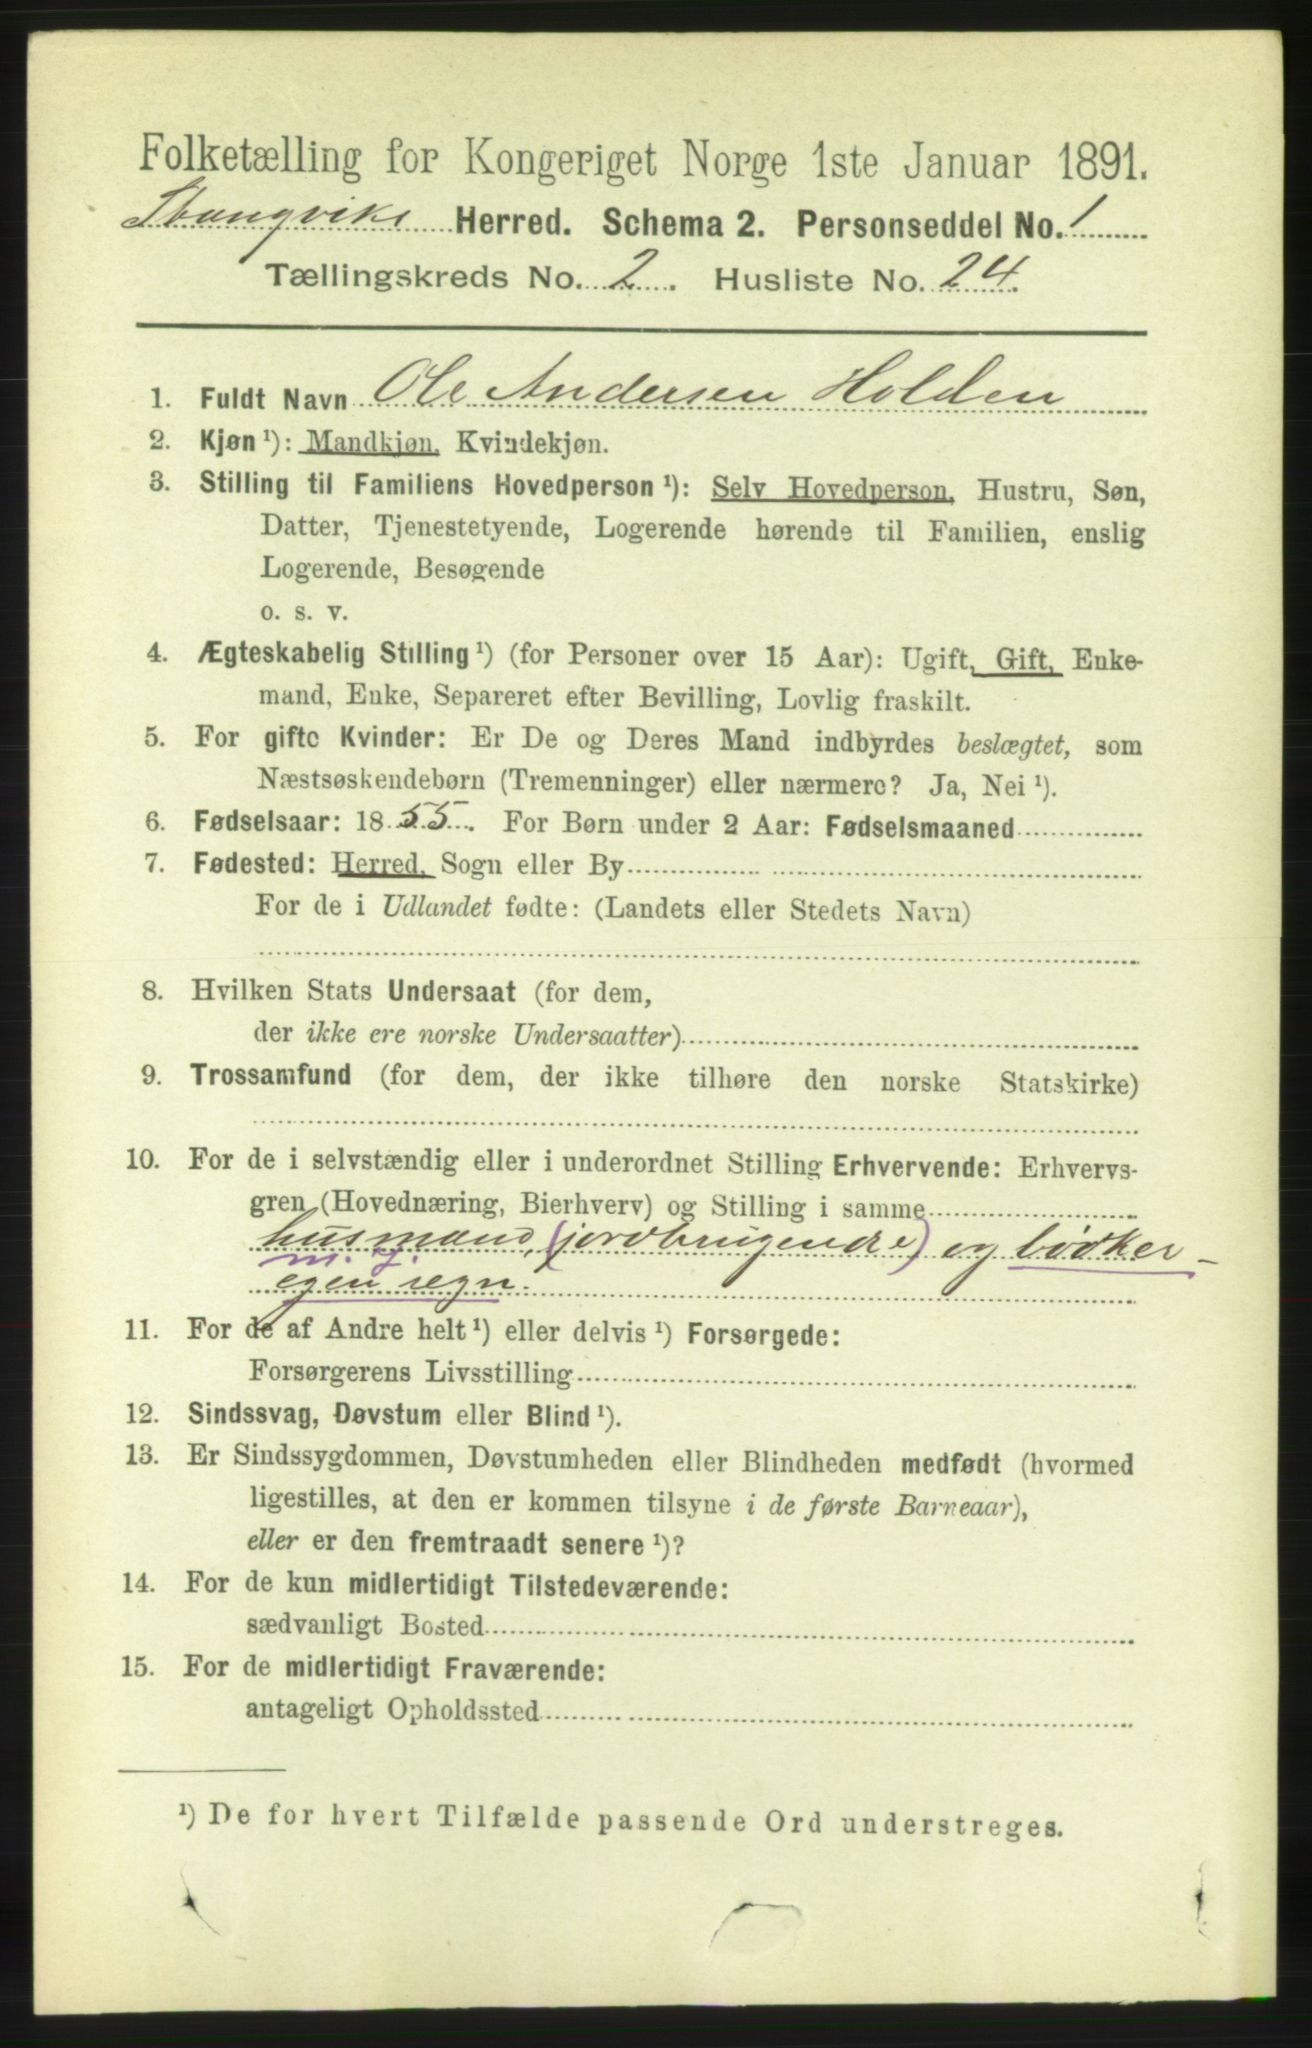 Folketælling for Kongeriget Norge 1ste Januar 1891.
Stangviks Herred. Schema 2. Personseddel No. 1
Tællingskreds No. 2. Husliste No. 24.
1. Fuldt Navn Ole Andersen Holden
2. Kjøn ¹): Mandkjøn, Kvindekjøn.
3. Stilling til Familiens Hovedperson ¹): Selv Hovedperson, Hustru, Søn,
Datter, Tjenestetyende, Logerende hørende til Familien, enslig
Logerende, Besøgende
o. s. v.
4. Ægteskabelig Stilling ¹) (for Personer over 15 Aar): Ugift, Gift, Enke-
mand, Enke, Separeret efter Bevilling, Lovlig fraskilt.
5. For gifte Kvinder: Er De og Deres Mand indbyrdes beslægtet, som
Næstsøskendebørn (Tremenninger) eller nærmere? Ja, Nei ¹).
6. Fødselsaar: 1855. For Børn under 2 Aar: Fødselsmaaned
7. Fødested: Herred, Sogn eller By
For de i Udlandet fødte: (Landets eller Stedets Navn)
8. Hvilken Stats Undersaat (for dem,
der ikke ere norske Undersaatter)
9. Trossamfund (for dem, der ikke tilhøre den norske Statskirke)
10. For de i selvstændig eller i underordnet Stilling Erhvervende: Erhvervs-
gren (Hovednæring, Bierhverv) og Stilling i samme
husmand, (jordbrugende) og bødker -
m. j.
egen regn.
11. For de af Andre helt ¹) eller delvis ¹) Forsørgede:
Forsørgerens Livsstilling
12. Sindssvag, Døvstum eller Blind ¹).
13. Er Sindssygdommen, Døvstumheden eller Blindheden medfødt (hvormed
ligestilles, at den er kommen tilsyne i de første Barneaar),
eller er den fremtraadt senere ¹)?
14. For de kun midlertidigt Tilstedeværende:
sædvanligt Bosted
15. For de midlertidigt Fraværende:
antageligt Opholdssted
¹) De for hvert Tilfælde passende Ord understreges.